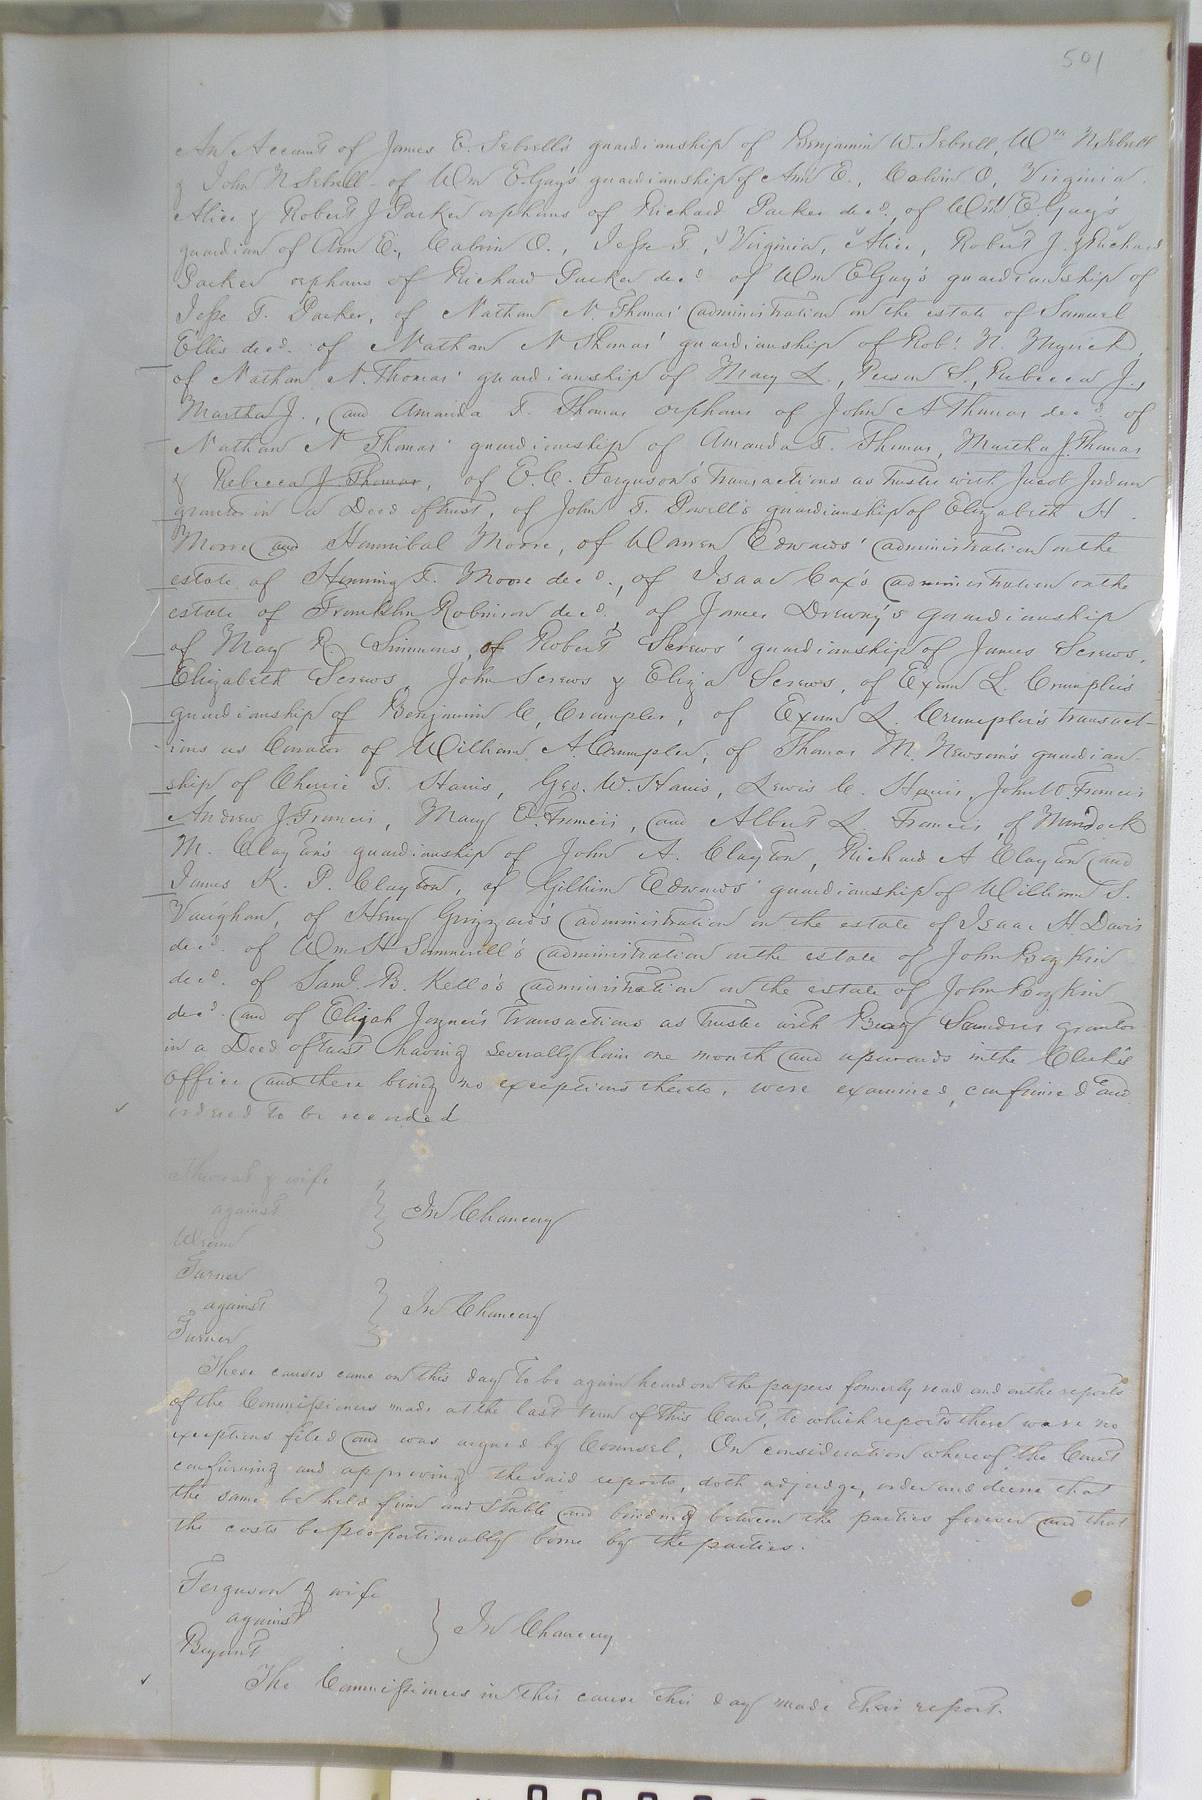 501
An Account of James E. Sebrell's guardianship of Benjamin W. Sebrell, Wm N Sebrell
& John N Sebrell - of Wm E Gay's guardianship of Ann E., Calvin O, Virginia.
Alice & Robert J Parker orphans of Richard Parker decd., of Wm E Gay's
guardian of Ann E., Calvin O., Jesse T., Virginia, Alice, Robert J. & Richard
Parker orphans of Richard Parker decd of Wm E Gay's guardianship of
Jesse T. Parker, of Nathan N. Thomas' administration on the estate of Samuel
Ellis decd. of Nathan N Thomas' guardianship of Robt. N. Myrick,
of Nathan N. Thomas' guardianship of Mary L., S., Rebecca J.,
Martha J., and Amanda T. Thomas orphans of John A Thomas decd. of
Nathan N Thomas' guardianship of Amanda T. Thomas, Martha J. Thomas
& Rebecca J. Thomas, of E. C. Ferguson's transactions as trustee with Jacob Jordan
grantor in a Deed of trust, of John T. Powell's guardianship of Elizabeth H.
Moore and Hannibal Moore, of Warren Edwards' administration on the
estate of Henning T. Moore decd., of Isaac Cox's administration on the
estate of Franklin Robinson decd, of James Drewry's guardianship
of Mary R. Simmons, of Robert Screws' guardianship of James Screws,
Elizabeth Screws, John Screws & Eliza Screws, of Exum L. Crumpler's
guardianship of Benjamin C. Crumpler, of Exum L. Crumpler's transact-
ions as Curator of William A. Crumpler, of Thomas M. Newsom's guardian-
ship of Cherrie T. Harris, Geo. W. Harris, Lewis C. Harris, John W. Francis
Andrew J. Francis, Mary E. Francis, and Albert L Francis, of Murdock
M. Clayton's guardianship of John A. Clayton, Richard A Clayton and
James K. P. Clayton, of Gilliam Edwards' guardianship of William S.
Vaughan, of Henry Grizzard's administration on the estate of Isaac H Davis
decd. of Wm H Summerell's administration on the estate of John Boykin
decd. of Saml. B. Kello's administration on the estate of John Boykin
decd. and of Elijah Joyner's transactions as trustee with Saunders grantor
in a Deed of trust having severally lain one month and upwards in the Clerk's
office and there being no exceptions thereto, were examined, confirmed and
ordered to be recorded
Thomas & wife
against } In Chancery
Wrenn
Turner
against } In Chancery
Turner
These causes came on this day to be again heard on the papers formerly read and on the reports
of the Commissioners made at the last term of this Court, to which reports there were no
exceptions filed and was argued by Counsel. On consideration whereof the Court
confirming and approving the said reports, doth adjudge, order and decree that
the same be held firm and stable and binding between the parties forever and that
the costs be proportionably borne by the parties.
Ferguson & wife
against } In Chancery
Bryant
The Commissioners in this cause this day made their report.